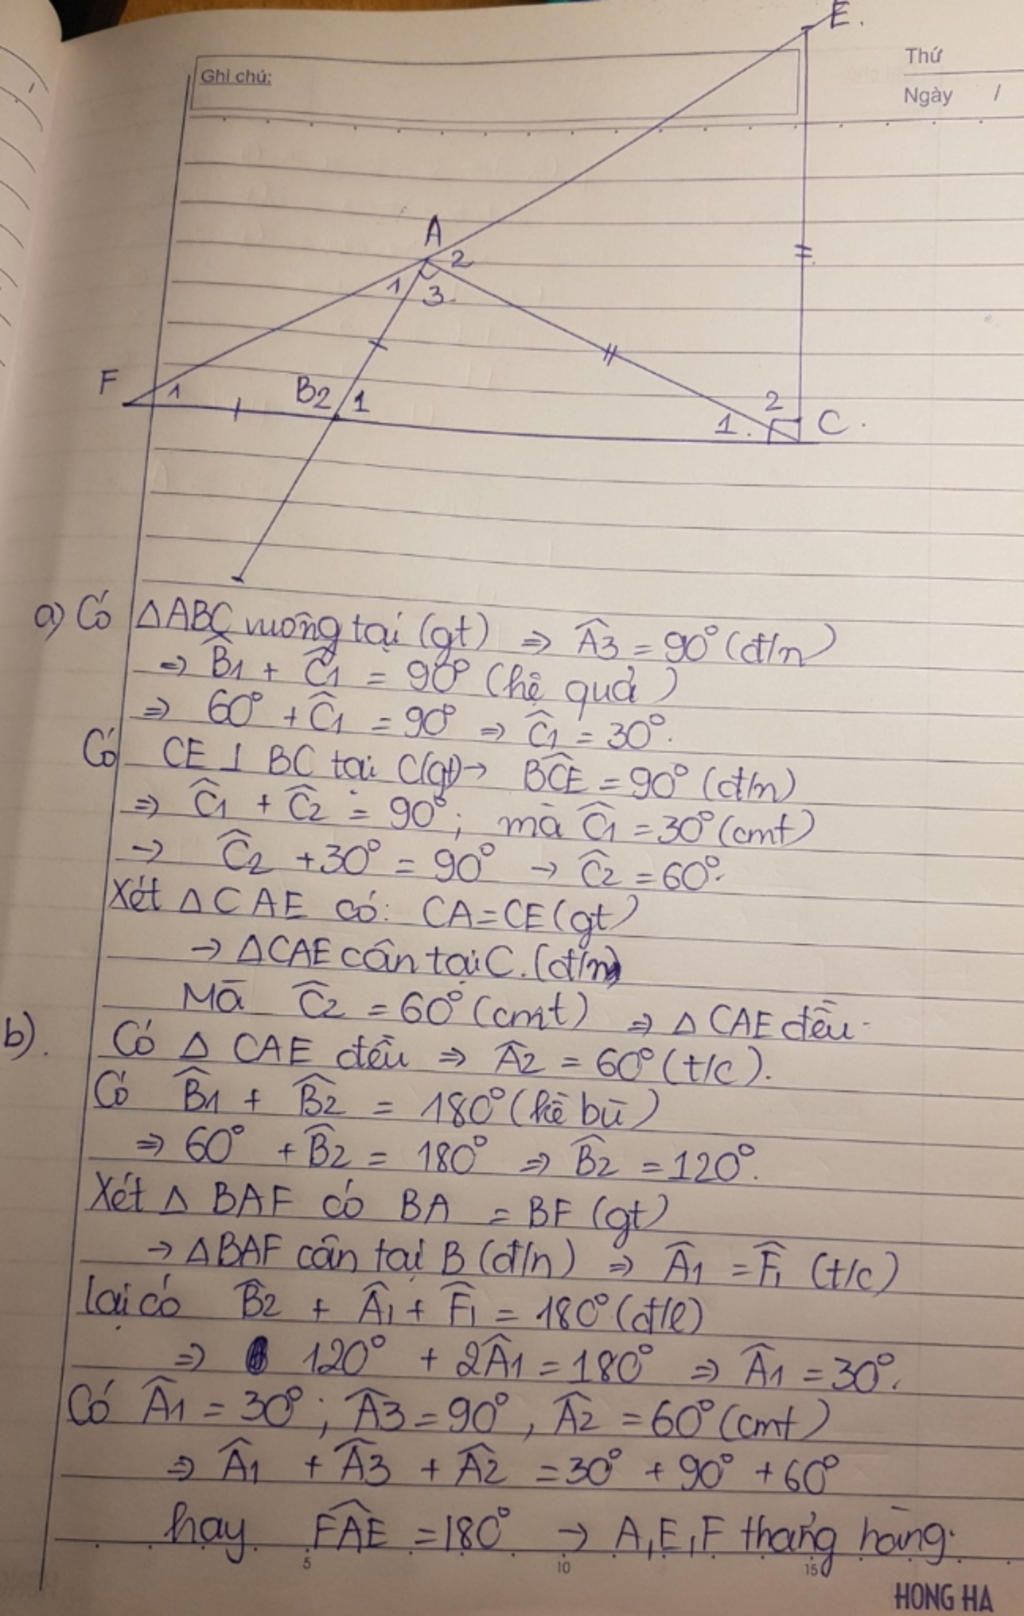 E.
Ghi chú:
Thứ
Ngày /
A
2
1 3
F 1 B2 1 2
1. C.
a) Có △ABC vuông tại (gt) ⇒ Â3 = 90° (đ/n)
⇒ B̂1 + Ĉ1 = 90° (hệ quả)
⇒ 60° + Ĉ1 = 90° ⇒ Ĉ1 = 30°.
Có CE ⊥ BC tại C(gt) → BĈE = 90° (đ/n)
⇒ Ĉ1 + Ĉ2 = 90°; mà Ĉ1 = 30° (cmt)
→ Ĉ2 + 30° = 90° → Ĉ2 = 60°.
Xét △CAE có: CA = CE (gt)
→ △CAE cân tại C. (đ/n)
Mà Ĉ2 = 60° (cmt) ⇒ △CAE đều.
b). Có △CAE đều ⇒ Â2 = 60° (t/c).
Có B̂1 + B̂2 = 180° (kề bù)
⇒ 60° + B̂2 = 180° ⇒ B̂2 = 120°.
Xét △BAF có BA = BF (gt)
→ △BAF cân tại B (đ/n) ⇒ Â1 = F̂1 (t/c)
lại có B̂2 + Â1 + F̂1 = 180° (đ/l)
⇒ 120° + 2Â1 = 180° ⇒ Â1 = 30°.
Có Â1 = 30°; Â3 = 90°, Â2 = 60° (cmt)
⇒ Â1 + Â3 + Â2 = 30° + 90° + 60°
hay FÂE = 180° → A, E, F thẳng hàng.
5 10 15
HONG HA